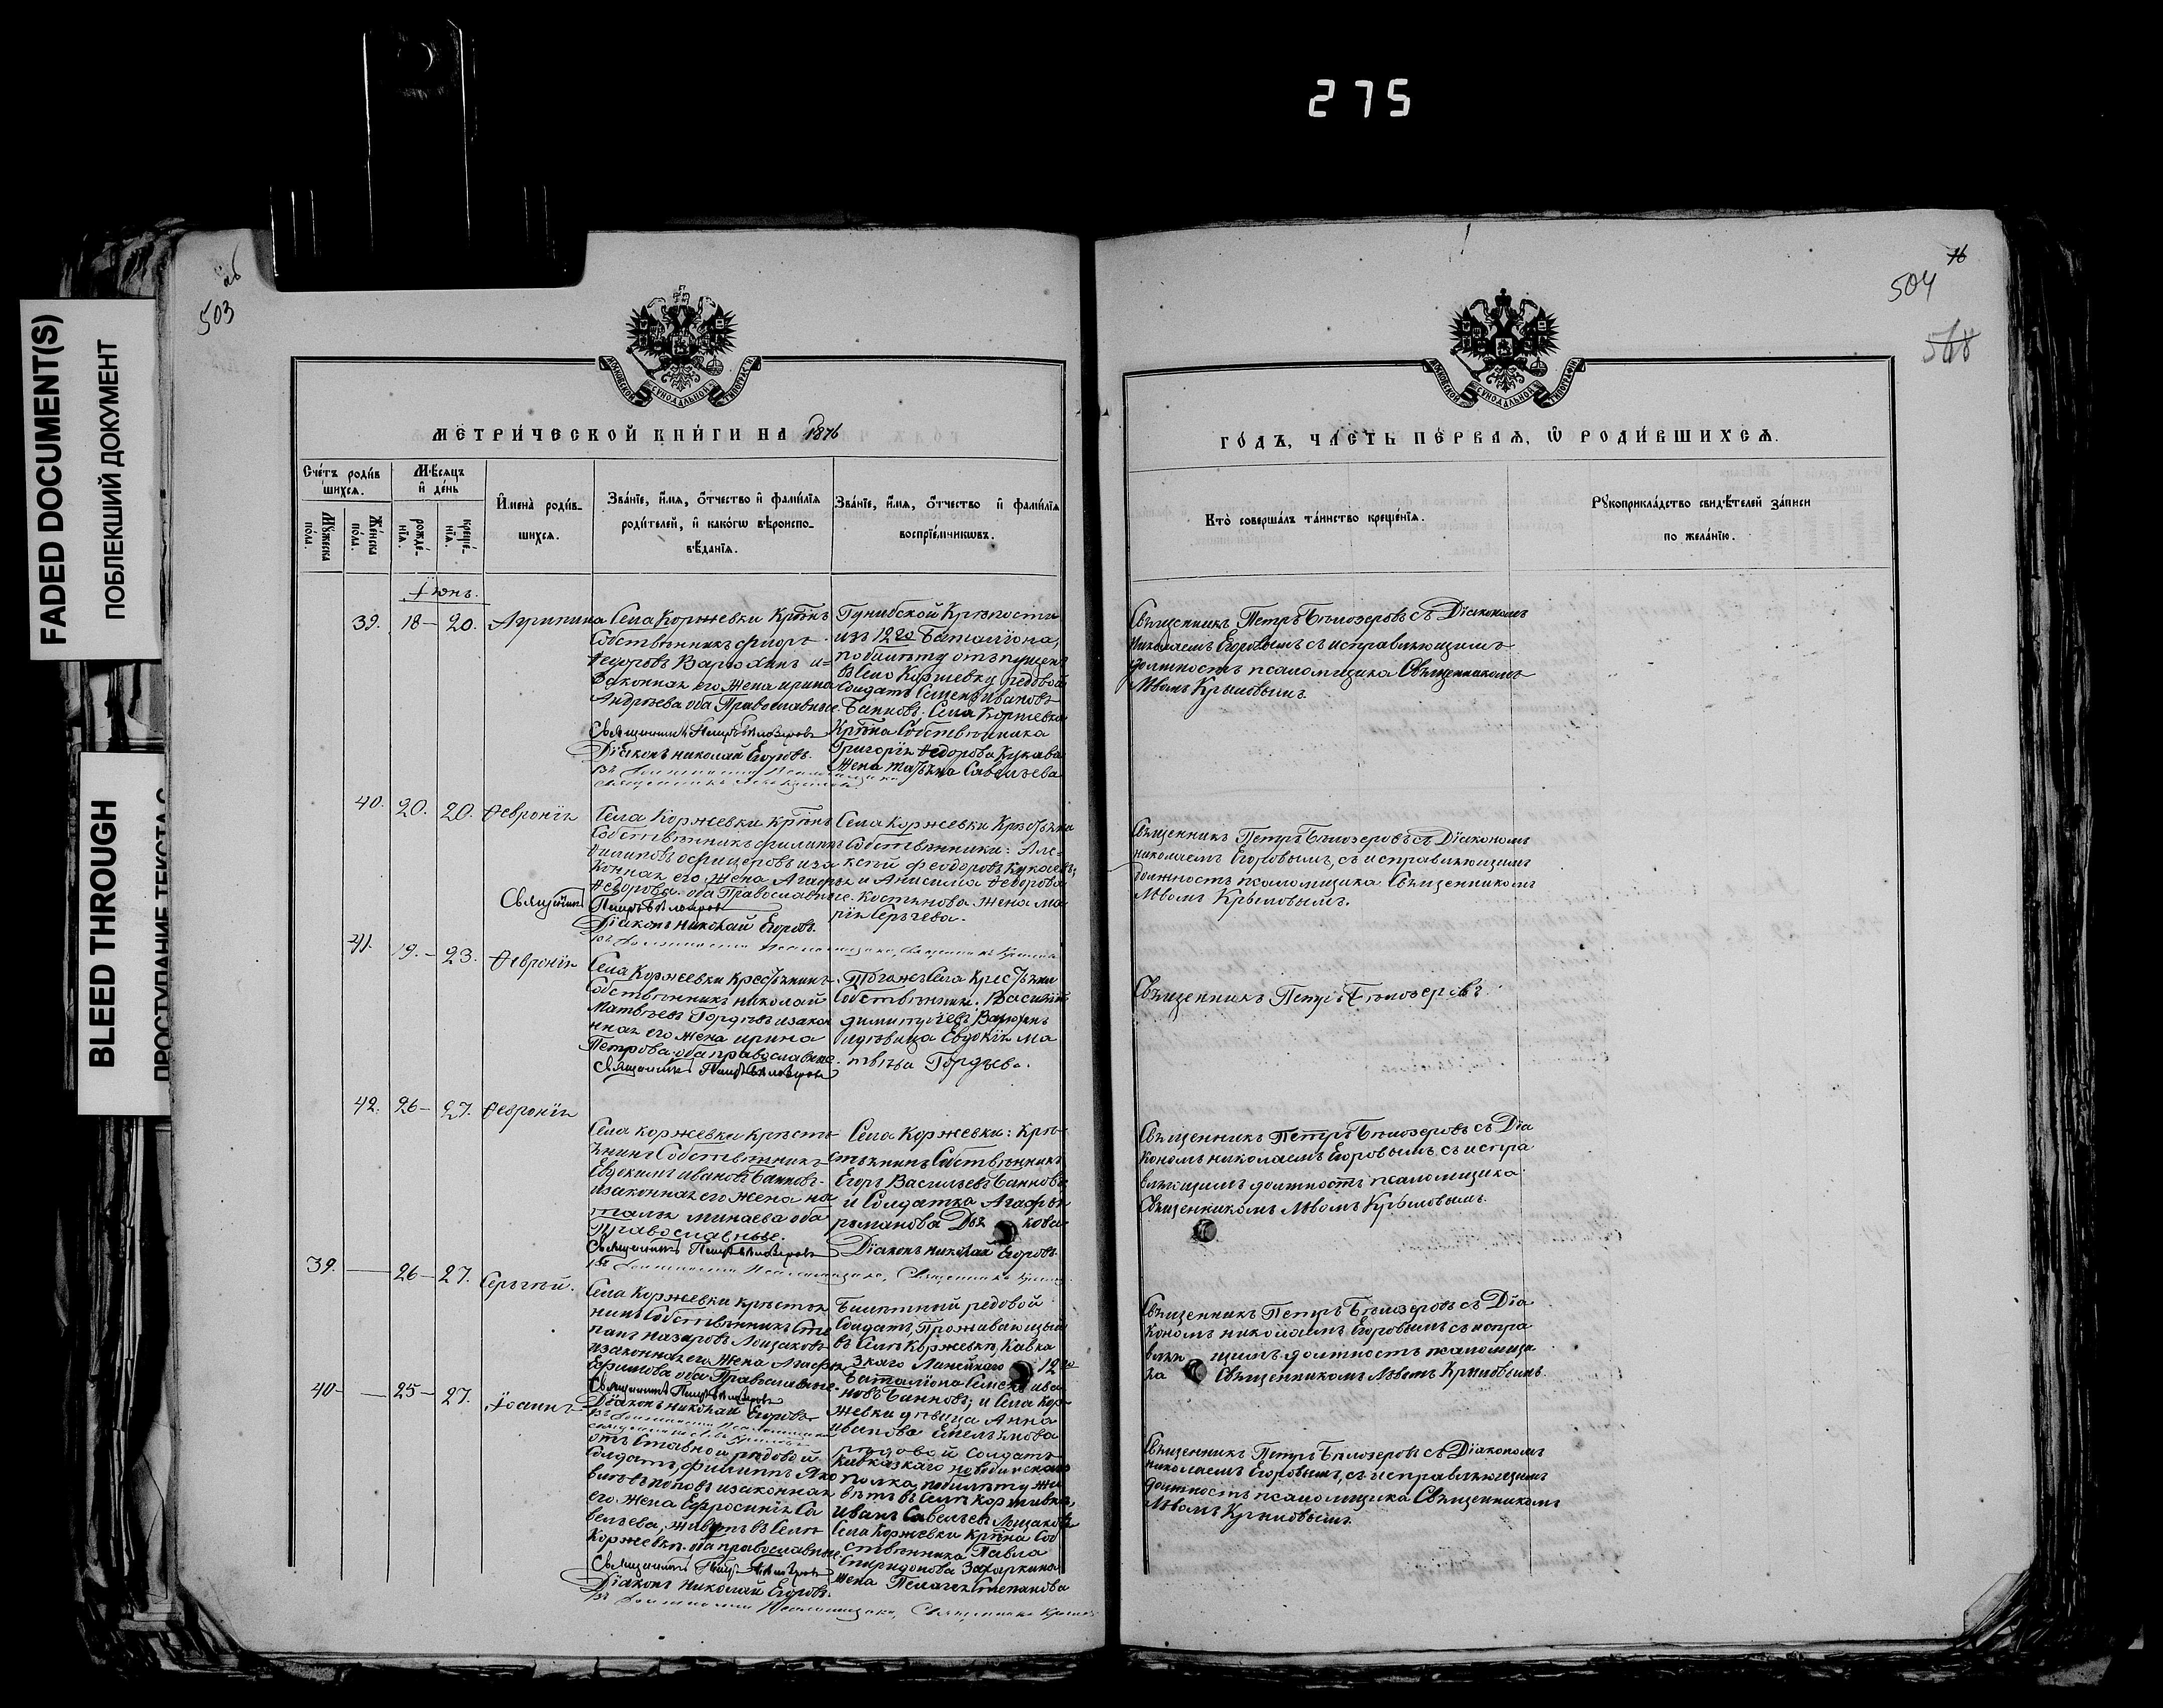 275
FADED DOCUMENT(S)
ПОБЛЕКШИЙ ДОКУМЕНТ
BLEED THROUGH
ПРОСТУПАНИЕ ТЕКСТА С
503
МОСКОВСКОЙ СУНОДАЛЬНОЙ ТИПОГРАФІИ
МЕТРИ́ЧЕСКОЙ КНИ́ГИ НА 1876
Сче́тъ роди́вшихсѧ.
Мѣ́сѧцъ и҆ де́нь
Мꙋ́жеска по́ла.
Же́нска по́ла.
рожде́нїѧ.
креще́нїѧ.
И҆мена̀ роди́вшихсѧ.
Зва́нїе, и҆́мѧ, ѻ҆́тчество и҆ фами́лїѧ
роди́телей, и҆ како́гѡ вѣ̀роиспо-
вѣ́данїѧ.
Зва́нїе, и҆́мѧ, ѻ҆́тчество и҆ фами́лїѧ
воспрїе́мникѡвъ.
Іюнь.
39. 18 — 20. Агрипина
Села Коржевки Крѣнъ
Собственникъ Фиоръ
Ѳедоровъ Варюхинъ и=
законная его жена ирина
Андреева оба Православные
Священникъ Петръ Бѣлозеровъ
Діаконъ николай Егоровъ.
Гунибской Крѣпости
изъ 12го Баталіона,
побилѣту отъпущен
въ Село Коржевку редовой
Солдатъ Семенъ Ивановъ
Банновъ. Села Коржевки
Крѣна Собственника
Григорія Ѳедорова Кукаева
Жена татьяна Савельева
40. 20. 20. Ѳевронія
Села Коржевки крѣнъ
Собственникъ филиппъ
Филиповъ офицеровъ иза
конная его жена Агафья
Ѳедорова. оба Православные.
Священникъ Петръ Бѣлозеровъ
Діаконъ николай Егоровъ.
Села Коржевки Крестьяни
Собственники: Але=
ксѣй Феодоровъ Кукаевъ,
и Анисима Ѳедорова
Костинова жена Ма
рія Сергѣева.
41. 19. — 23. Ѳевронія
Села Коржевки Крестьянинъ
Собственникъ николай
Матвѣевъ Гордѣевъ изакон
ная его жена ирина
Петрова оба православные.
Священникъ Петръ Бѣлозеровъ
Тогожъ Села Крестьяни
Собственники. Василій
димитріевъ Варюхинъ
идѣвица Евдокія Ма
твѣева Гордѣева.
42. 26 — 27. Ѳевронія
Села коржевки кресть
янинъ Собственникъ
Евдокимъ ивановъ Банновъ
изаконная его жена на
талья минаева оба
Православные.
Священникъ Петръ Бѣлозеровъ
Села Коржевки: Кре
стьянинъ Собственникъ
Егоръ Васильевъ Банновъ
и Солдатка Агафья
романова Дья кова
Діаконъ николай Егоровъ.
39. — 26 — 27. Сергѣй.
Села Коржевки крестья
нинъ Собственникъ Сте
панъ назаровъ Лощаковъ
изаконная его жена Агафья
Ефимова оба Православные.
Священникъ Петръ Бѣлозеровъ
Діаконъ николай Егоровъ
Билетный редовой
Солдатъ, Проживающій
въ Селѣ Коржевкѣ, Кавка
зкаго Линейнаго 12го
Баталіона Семенъ ива
новъ Банновъ; и Села Кор
жевки дѣвица Анна
иванова Емельянова
40 — — 25 — 27. Іоаннъ
отъставной рядовой
Солдатъ, филиппъ Яко
влевъ поповъ изаконная
его жена Ефросинія Са
вельева, живутъ въ Селѣ
Коржевкѣ оба православные
Священникъ Петръ Бѣлозеровъ
Діаконъ николай Егоровъ.
Рядовой Солдатъ
Кавказкаго
полка, побилѣту жи
ветъ въ Селѣ Коржевкѣ,
иванъ Савельевъ Лощаковъ
Села Коржевки Крѣна Соб
ственника Павла
Спиридонова Захаркина
жена Пелагея Степанова
16
504
518
МОСКОВСКОЙ СУНОДАЛЬНОЙ ТИПОГРАФІИ
ГО́ДЪ, ЧА́СТЬ ПЕ́РВАѦ, Ѽ РОДИ́ВШИХСѦ.
Кто̀ соверша́лъ та́инство креще́нїѧ.
Рꙋкоприкла́дство свидѣ́телей за́писи
по жела́нїю.
Священникъ Петръ Бѣлозеровъ съ Діакономъ
николаемъ Егоровымъ съ исправляющимъ
должность псаломщика Священникомъ
Львомъ Крыловымъ.
Священникъ Петръ Бѣлозеровъ съ Діакономъ
николаемъ Егоровымъ, съ исправляющимъ
должность псаломщика Священникомъ
Львомъ Крыловымъ.
Священникъ Петръ Бѣлозеровъ.
Священникъ Петръ Бѣлозеровъ съ Діа
кономъ николаемъ Егоровымъ, съ испра
вляющимъ должность псаломщика
Священникомъ Львомъ Крыловымъ.
Священникъ Петръ Бѣлозеровъ съ Діа
кономъ николаемъ Егоровымъ съ испра
вляю щимъ должность псаломщи
ка Священникомъ Львомъ Крыловымъ.
Священникъ Петръ Бѣлозеровъ съ Діакономъ
николаемъ Егоровымъ, съ исправляющимъ
должность псаломщика Священникомъ
Львомъ Крыловымъ.